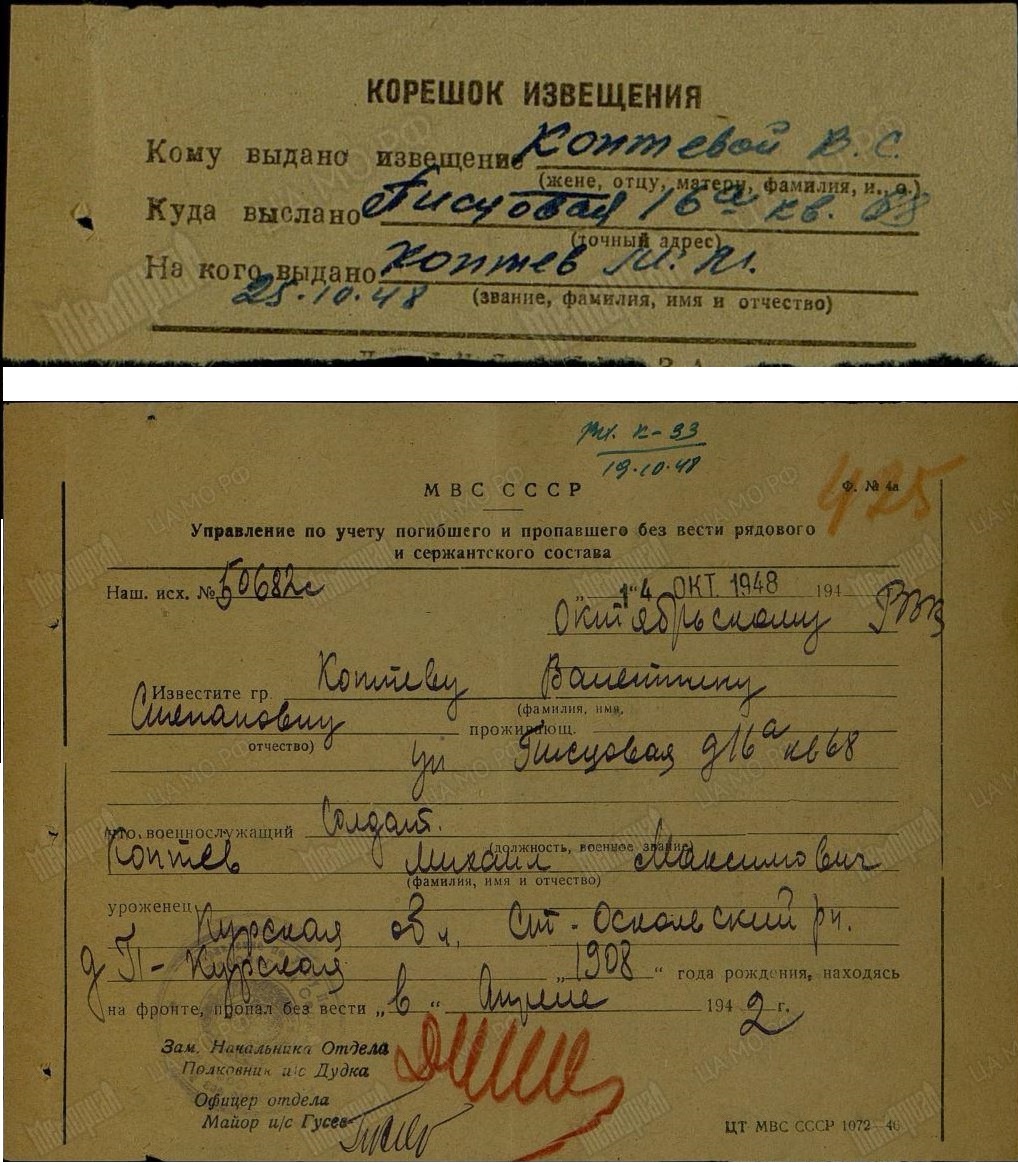 КОРЕШОК ИЗВЕЩЕНИЯ
Кому выдано извещение Коптевой В. С.
(жене, отцу, матери, фамилия, и., о.)
Куда выслано Писцовая 16а кв. 68
(точный адрес)
На кого выдано Коптев М. М.
25.10.48 (звание, фамилия, имя и отчество)
Вх. К-93
19.10.48
425
МВС СССР Ф. № 4а
Управление по учету погибшего и пропавшего без вести рядового
и сержантского состава
Наш. исх. № 50682с „ 14 “ ОКТ. 1948 194
Октябрьскому РВК
Известите гр. Коптеву Валентину
(фамилия, имя,
Степановну проживающ.
отчество)
ул Писцовая д 16а кв 68
что военнослужащий Солдат.
(должность, военное звание)
Коптев Михаил Максимович
(фамилия, имя и отчество)
уроженец Курская обл, Ст-Оскольский рн.
д П-Курская „ 1908 “ года рождения, находясь
на фронте, пропал без вести „ в “ Апреле 1942 г.
Зам. Начальника Отдела
Полковник и/с Дудка
Офицер отдела
Майор и/с Гусев
ЦТ МВС СССР 1072—46